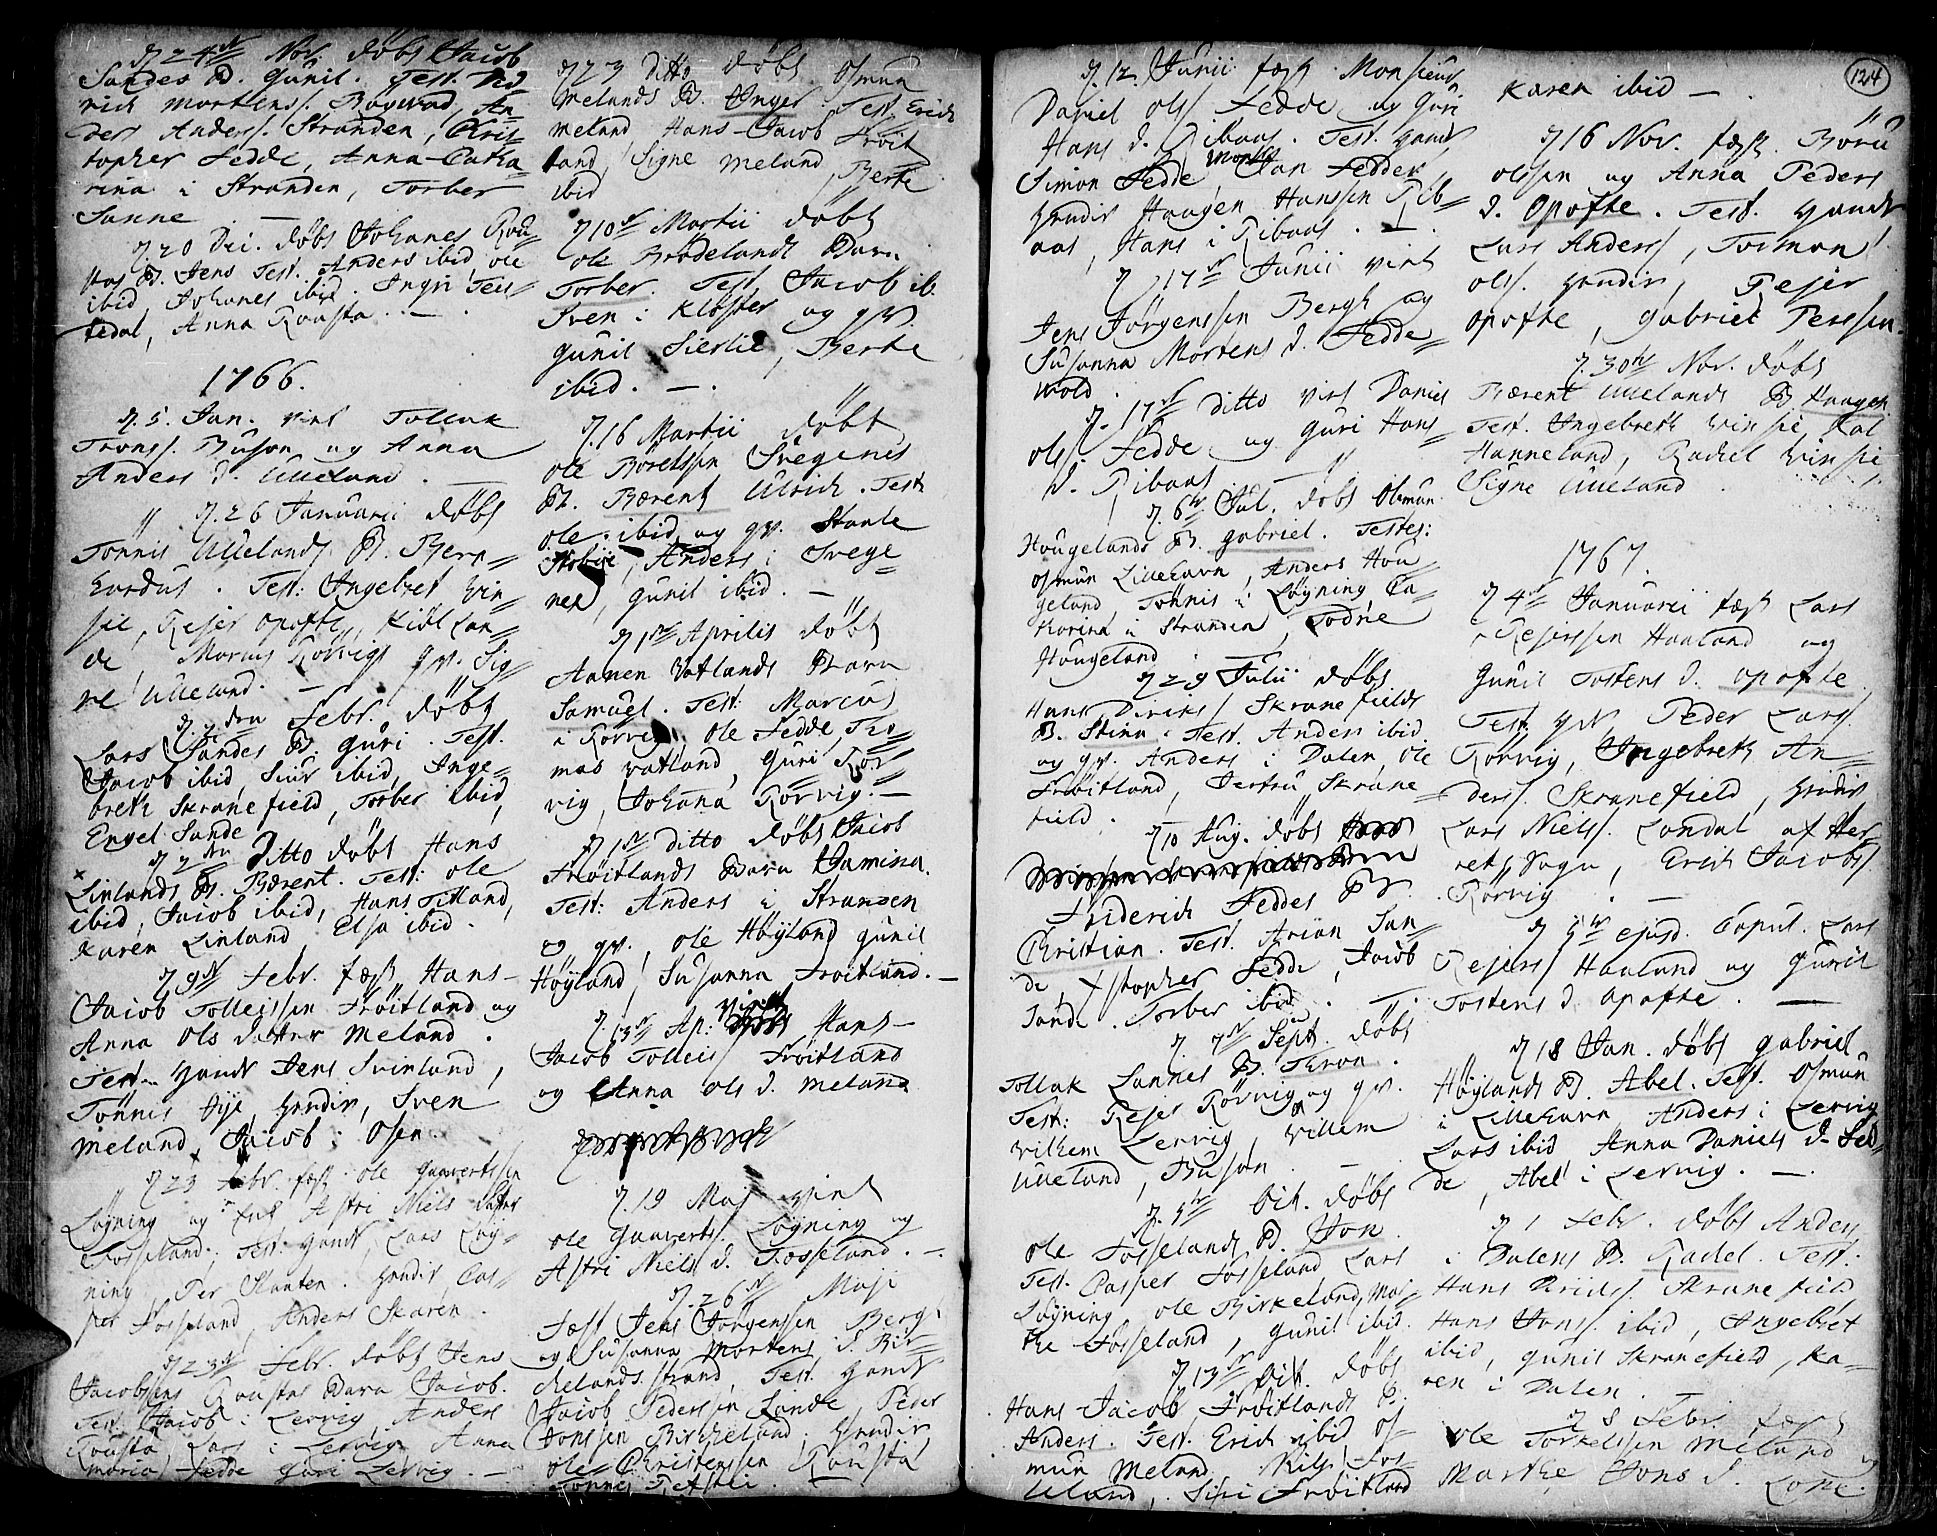 d. 24de Nov. døbt Jacob
Sandes B. Gunil. Test. Did
rich Mortens. Røgevad, An-
ders Anders. Stranden, Chris-
topher Fedde, Anna-Catha
rina i Stranden, Torber
Sanne —
d. 20 Dec. døbt Johanes Rou
stas B. Jens Test. Anders ibid, ole
ibid Johanes ibid. Ingri Teis-
tedal, Anna Rousta. —
1766.
d. 5. Jan. viet Tollak
Trons. Buson og Anna
Anders d. Ulleland. —
d. 26 Januarii døbt
Tønnis Ullelands B. Bern-
hardus. Test: Ingebret Vin-
sie, Rejer opofte, Kiøl Lan-
de, Morius Rørvig, gv. Sig-
ne Ulleland. —
d. 2den Febr. døbt
Lars Sandes B. Guri. Test.
Jacob ibid, Siur ibid, Inge-
breth Skranefield, Torber ibid,
Engel Sande
d. 2den Ditto døbt Hans
Linlands B. Bærent. Test: ole
ibid, Jacob ibid, Hans Titland,
Karen Linland, Elsa ibid.
d. 9de Febr. fæst Hans-
Jacob Tolleissen Frøitland og
Anna ols datter Meland.
Test. Hands Jens Svinland,
Tønnis Øye, Hendes, Sven
Meland, Jacob i Osen.
d. 23 Febr. fæst ole Gaavertssen
Løgning og Astri Niels datter
Fosseland. Test. Hands, Lars Løg-
ning Per Slanten. Hendis Cas-
per Fosseland, Anders Skaren.
d. 23de Febr. døbt Jens
Jacobsens Roustas Barn Jacob.
Test. Jacob i Lervig, Anders
Rousta, Lars i Lervig, Anna
Maria Fedde Guri Lervig. —
d. 23 Ditto døbt Osmun
Melands B. Inger. Test. Erich
Meland, Hans-Jacob Frøit
land, Signe Meland, Berte
ibid
d. 10de Martii døbt
ole Brødelands Barn
Torber. Test. Jacob ib.
Sven i Kloster og gv.
Gunil Sierlie, Berte
ibid. —.
d. 16 Martii døbt
ole Børelssen Svegenes
B. Bærent Ulrich. Test.
ole ibid og gv. Staale
Anders i Svege-
nes, Gunil ibid. —
d. 1ste Aprilis døbt
Aanen Vatlands Barn
Samuel. Test: Marcus
i Rørvig, ole Fedde, To-
mas Vatland, Guri Rør-
vig, Johana Rørvig. —
d. 1ste Ditto døbt Jacob
Frøitlands Barn Jamina.
Test: Anders i Stranden
og gv., ole Høyland Gunil
Høyland, Susanna Frøitland. —
d. 13de Ap: viet Hans-
Jacob Tolleis. Frøitland
og Anna ols d. Meland
d. 19 Maj viet
ole Gaaverts. Løgning og
Astri Niels d. Fosseland. —.
d. 26de Maji
Fæst Jens Jørgenssen Berg
og Susanna Mortens d. Bir-
chelands strand, Test. Hands
Jacob Pederssen Lande, Peder
Jonssen Bircheland. Hendis
ole Christenssen Rousta
Tønnes Refsti.
d. 12. Junii fæst Monsieur
Daniel ols. Fedde og Guri
Hans d. Ribaas. Test. Hands
Simon Fedde, Monsr Jan Fedde,
Hendis Haagen Hanssen Rib-
aas, Hans i Ribaas. —.
d. 17de Junii viet
Jens Jørgenssen Bergh og
Susanna Mortens d. Fedde-
wold.
d. 17de Ditto viet Daniel
ols. Fedde og Guri Hans-
d. Ribaas —
d. 6te Jul. døbt Osmun
Hougelands B. Gabriel. Testes:
Osmun Lillehavn, Anders Hou-
geland, Tønnis i Løgning Ca-
tharina i Stranden, Todne
Hougeland
d. 29 Julii døbt
Hans Dirichs. Skranefields
B. Stina. Test. Anders ibid
og gv. Anders i Dalen, ole
Frøitland, Jertru Skrane-
field.
d. 10 Aug. døbt
Friderich Feddes B.
Christian. Test. Arian San-
de, Xstopher Fedde, Jacob
Sand. Torber ibid. —.
d. 7de Sept. døbt
Tollak Lunnes B. Thron.
Test: Rejer Rørvig og gv.
Vilhem Lervig, Villem
Ulleland, Buson. —
d. 5te Oct. døbt
ole Fosselands B. Jon
Test. Casper Fosseland Lars
Løgning, ole Birkeland, Mar-
the Fosseland, Gunil ibid.
d. 13de Oct. døbt
Hans Jacob Frøitlands B:
Anders. Test. Erich ibid Os-
mun Meland, Nils Fos-
seland, Siri Frøitland
124
Karen ibid —.
d. 16 Nov. fæst. Børu
olssen og Anna Peders
d. Opofte. Test. Hands
Lars Anders., Tormon
ols. Hendis, Rejer
opofte, Gabriel Perssen.
d. 30te Nov. døbt
Bærent Ullelands B. Haagen
Test. Ingebreth Vinsie, Kal
Hanneland, Rachel Vinsie,
Signe Ulleland.
1767.
d. 4de Januarii fæst Lars
Rejerssen Haaland og
Gunil Tostens d. opofte.
Test. Hds. Peder Lars.
Rørvig, Ingebreth An-
ders. Skranefield, Hendis
Lars Niels. Londal af Her-
rets Sogn, Erich Jacobs.
Rørvig. —
d. 5te ejusd. Copul. Lars
Rejers. Haaland og Gunil
Tostens d. Opofte. —
d. 18 Jan. døbt Gabriel
Høylands B. Abel. Test. Osmun
i Lillehavn Anders i Lervig
Lars ibid, Anna Daniels d. Fed-
de, Abel i Lervig. —.
d. 1 Febr. døbt Anders
i Dalens B. Rachel. Test.
Hans Diriks. Skranefield
Hans Jons. ibid, Ingebret
ibid, Gunil Skranefield, Ka-
ren i Dalen. —
d. 8 Febr. fæst
ole Torkelssen Meland og
Marthe Jons d. Lone.